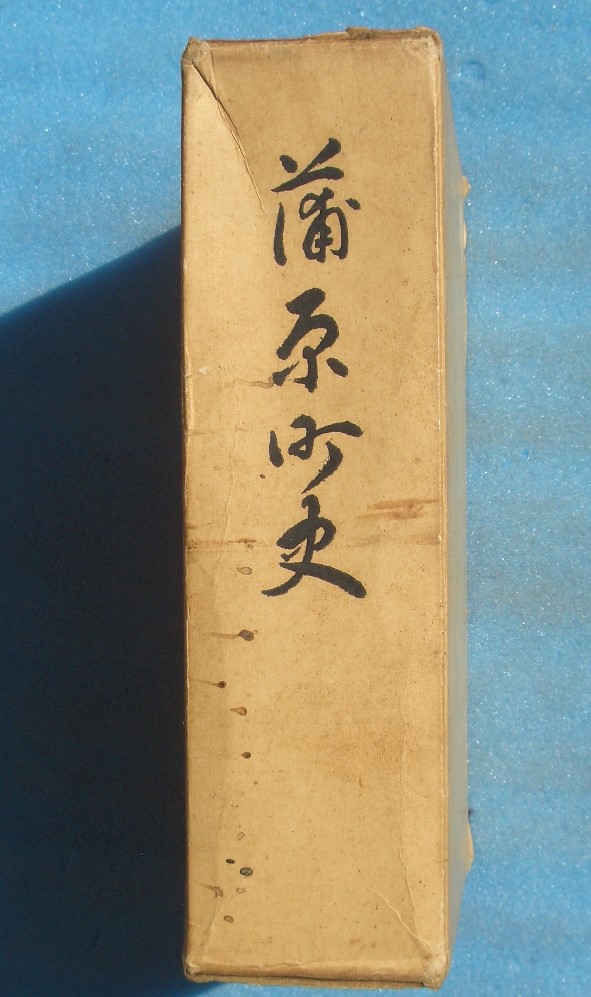 蒲原町史